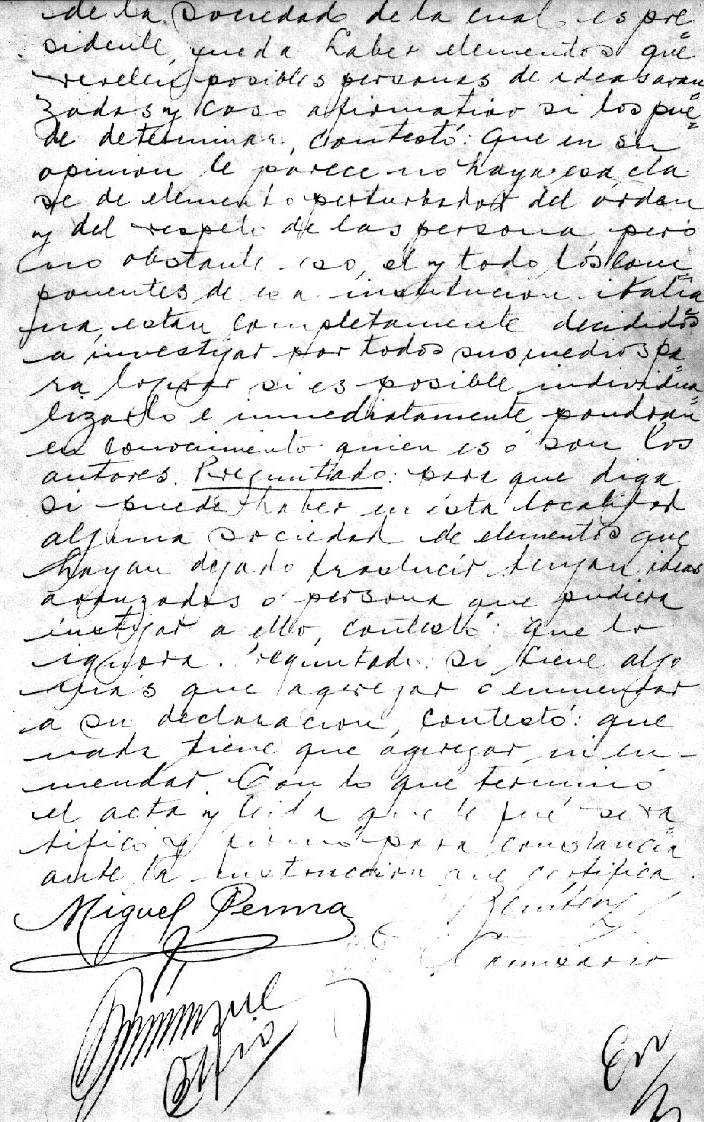 de la sociedad de la cual es pre=
sidente, pueda haber elementos que
revelen posibles personas de ideas avan=
zadas y caso afirmativo si los pue=
de determinar, contestó: Que en su
opinion le parece no haya esa cla
se de elemento perturbador del órden
y del respeto de las persona pero
no obstante eso, él y todo lós com=
ponentes de esa institucion italia
na, estan completamente decididos
a investigar por todos sus medios pa=
ra lograr si es posible individua=
lizarlo e inmediatamente pondran
en conocimiento quien es ó son los
autores. Preguntado: para que diga
si puede haber en ésta localidad
alguna sociedad de elementos que
hayan dejado traslucir tengan ideas
avanzadas o persona que pudiera
instigar a ello, contestó: que lo
ignora. Preguntado: si tiene algo
mas que agregar o enmendar
a su declaracion, contestó: que
nada tiene que agregar ni en-
mendar. Con lo que terminó
el acta y leida que le fué se ra=
tificó y firmó para constancia
ante la instruccion que certifica.
Miguel Penna
Comisario
En